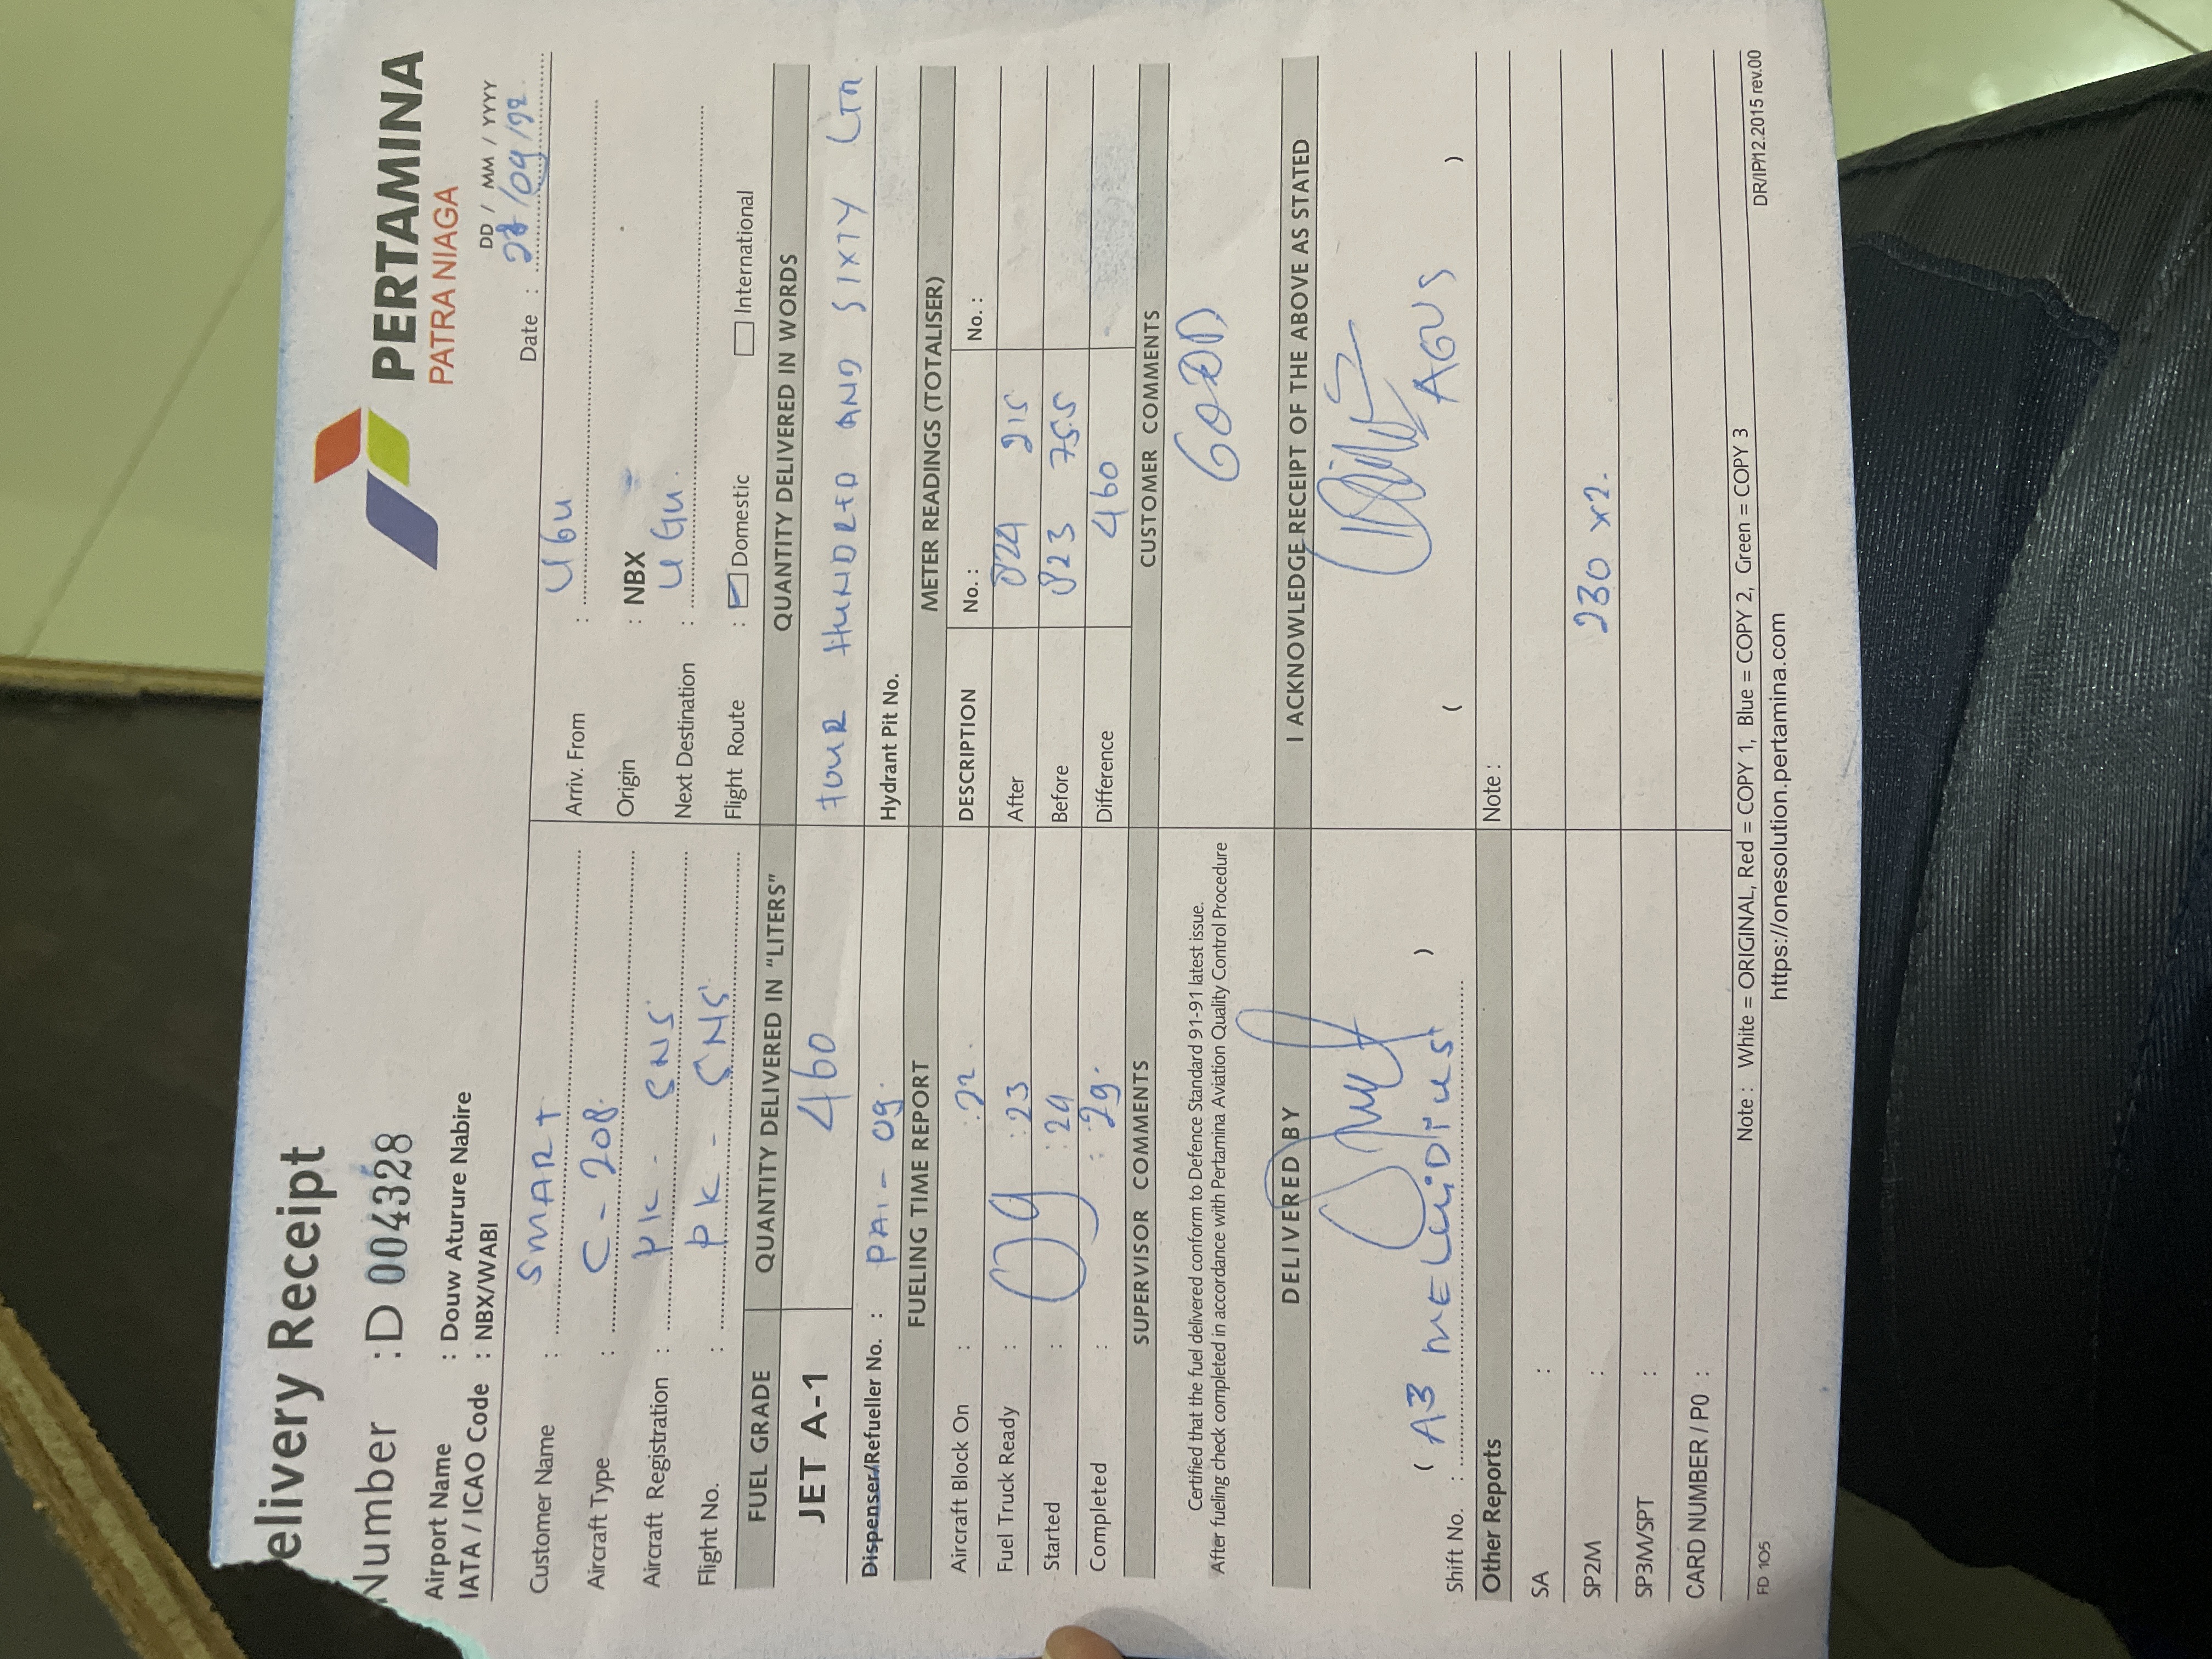 elivery Receipt
PERTAMINA
PATRA NIAGA
Number : D 004328
Airport Name : Douw Aturure Nabire
IATA / ICAO Code : NBX/WABI
DD / MM / YYYY
Date :
Customer Name : SMART
Aircraft Type : C - 208.
Aircraft Registration : PK - SNS
Flight No. : PK - SNS
Arriv. From :
Origin : NBX
Next Destination : UGU.
Flight Route : Domestic International
FUEL GRADE QUANTITY DELIVERED IN "LITERS" QUANTITY DELIVERED IN WORDS
JET A-1 460 FOUR HUNDRED AND SIXTY LTR
Dispenser/Refueller No. : PAI - 09. Hydrant Pit No.
FUELING TIME REPORT METER READINGS (TOTALISER)
Aircraft Block On : : 22 DESCRIPTION No. : No. :
Fuel Truck Ready : : 23 After 024 215
Started : : 24 Before 023 755
Completed : : 29. Difference 460
SUPERVISOR COMMENTS CUSTOMER COMMENTS
Certified that the fuel delivered conform to Defence Standard 91-91 latest issue.
After fueling check completed in accordance with Pertamina Aviation Quality Control Procedure
GOOD
DELIVERED BY I ACKNOWLEDGE RECEIPT OF THE ABOVE AS STATED
AGUS
Shift No. : ( A3 ) ( )
Other Reports Note :
SA :
SP2M : 230 x2.
SP3M/SPT :
CARD NUMBER / P0 :
Note : White = ORIGINAL, Red = COPY 1, Blue = COPY 2, Green = COPY 3
FD 105 DR/IP/12.2015 rev.00
https://onesolution.pertamina.com